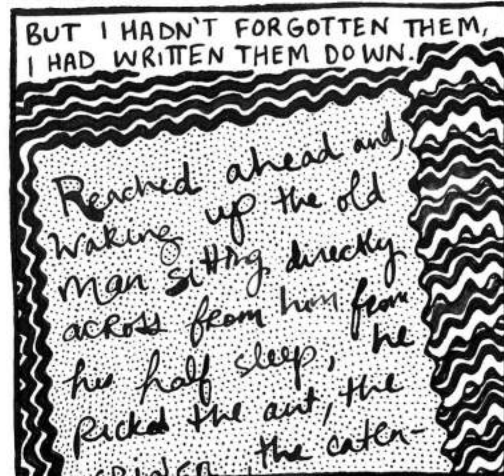 BUT I HADN'T FORGOTTEN THEM,
I HAD WRITTEN THEM DOWN.
Reached ahead and,
waking up the old
man sitting directly
across from him from
his half sleep, he
picked the ant, the
spider, the cater-